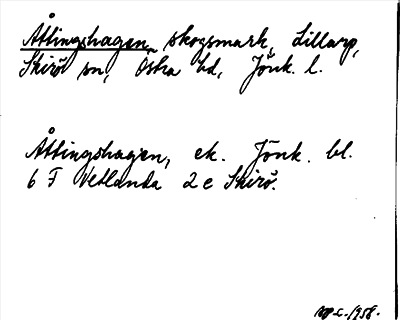 Åttingshagen, skogsmark, Lillarp,
Skirö sn, Östra hd, Jönk. l.
Åttingshagen, ek. Jönk. bl.
6 F Vetlanda 2 e Skirö.
1958.